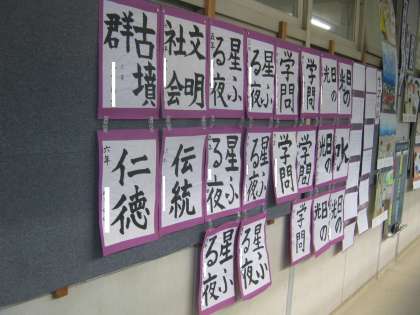 古墳
群
文明
社会
五年
星ふ
る夜
星ふ
る夜
学問
学問
日の
光
日の
光
六年
仁徳
伝統
星ふ
る夜
星ふ
る夜
学問
学問
日の
光
星ふ
る夜
星ふ
る夜
学問
日の
光
日の
光